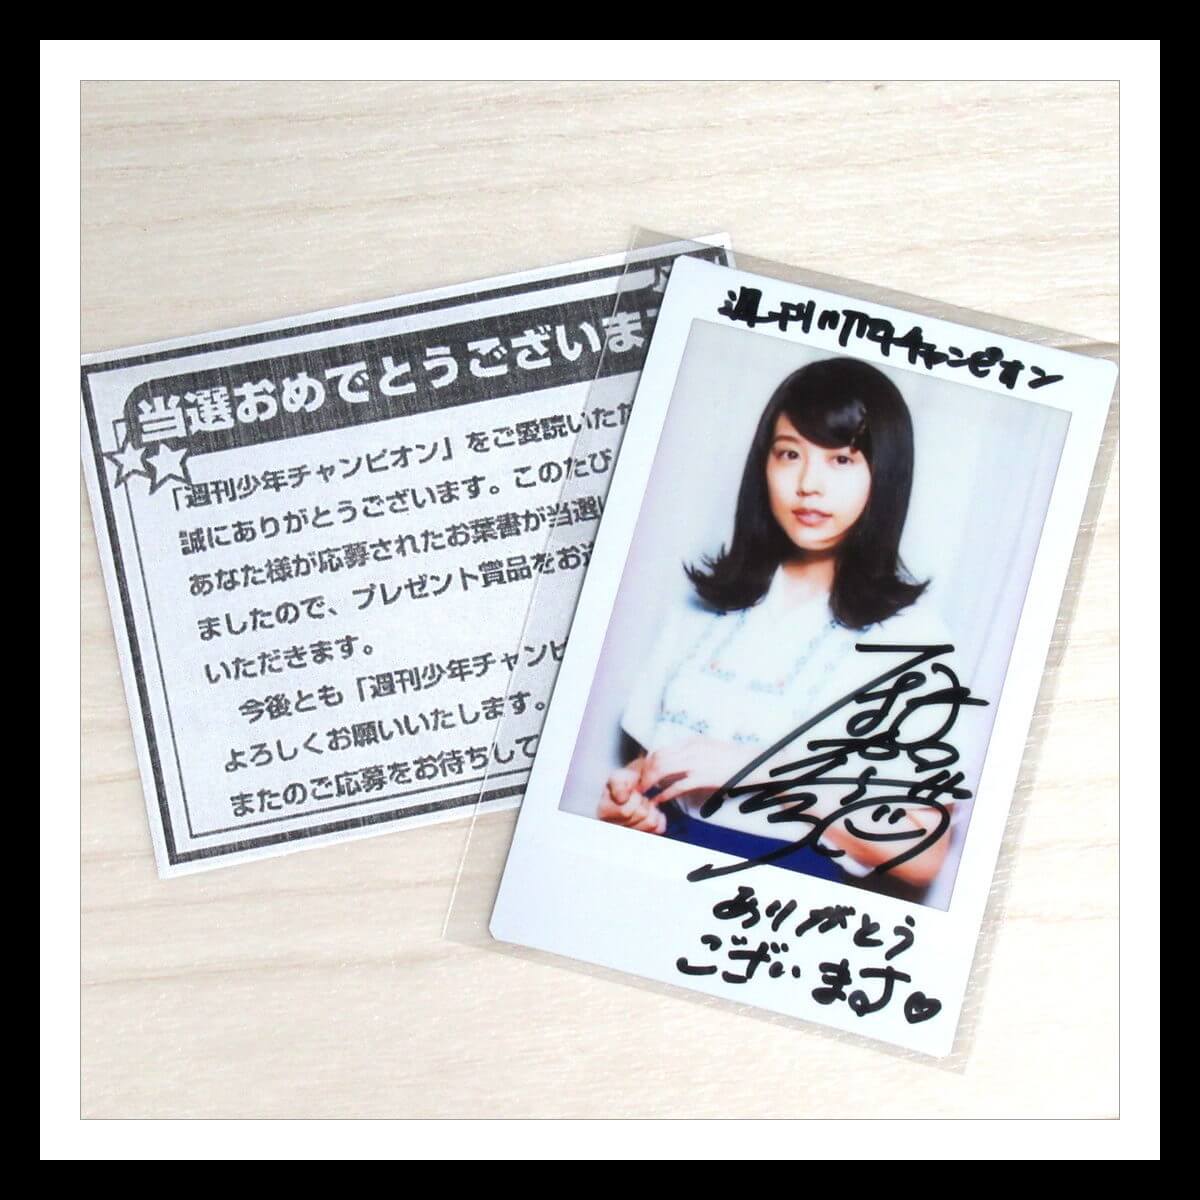 当選おめでとうございます
「週刊少年チャンピオン」をご愛読いただ
誠にありがとうございます。このたび
あなた様が応募されたお葉書が当選し
ましたので、プレゼント賞品をお送
いただきます。
今後とも「週刊少年チャンピ
よろしくお願いいたします。
またのご応募をお待ちして
週刊少年チャンピオン
ありがとう
ございます♡